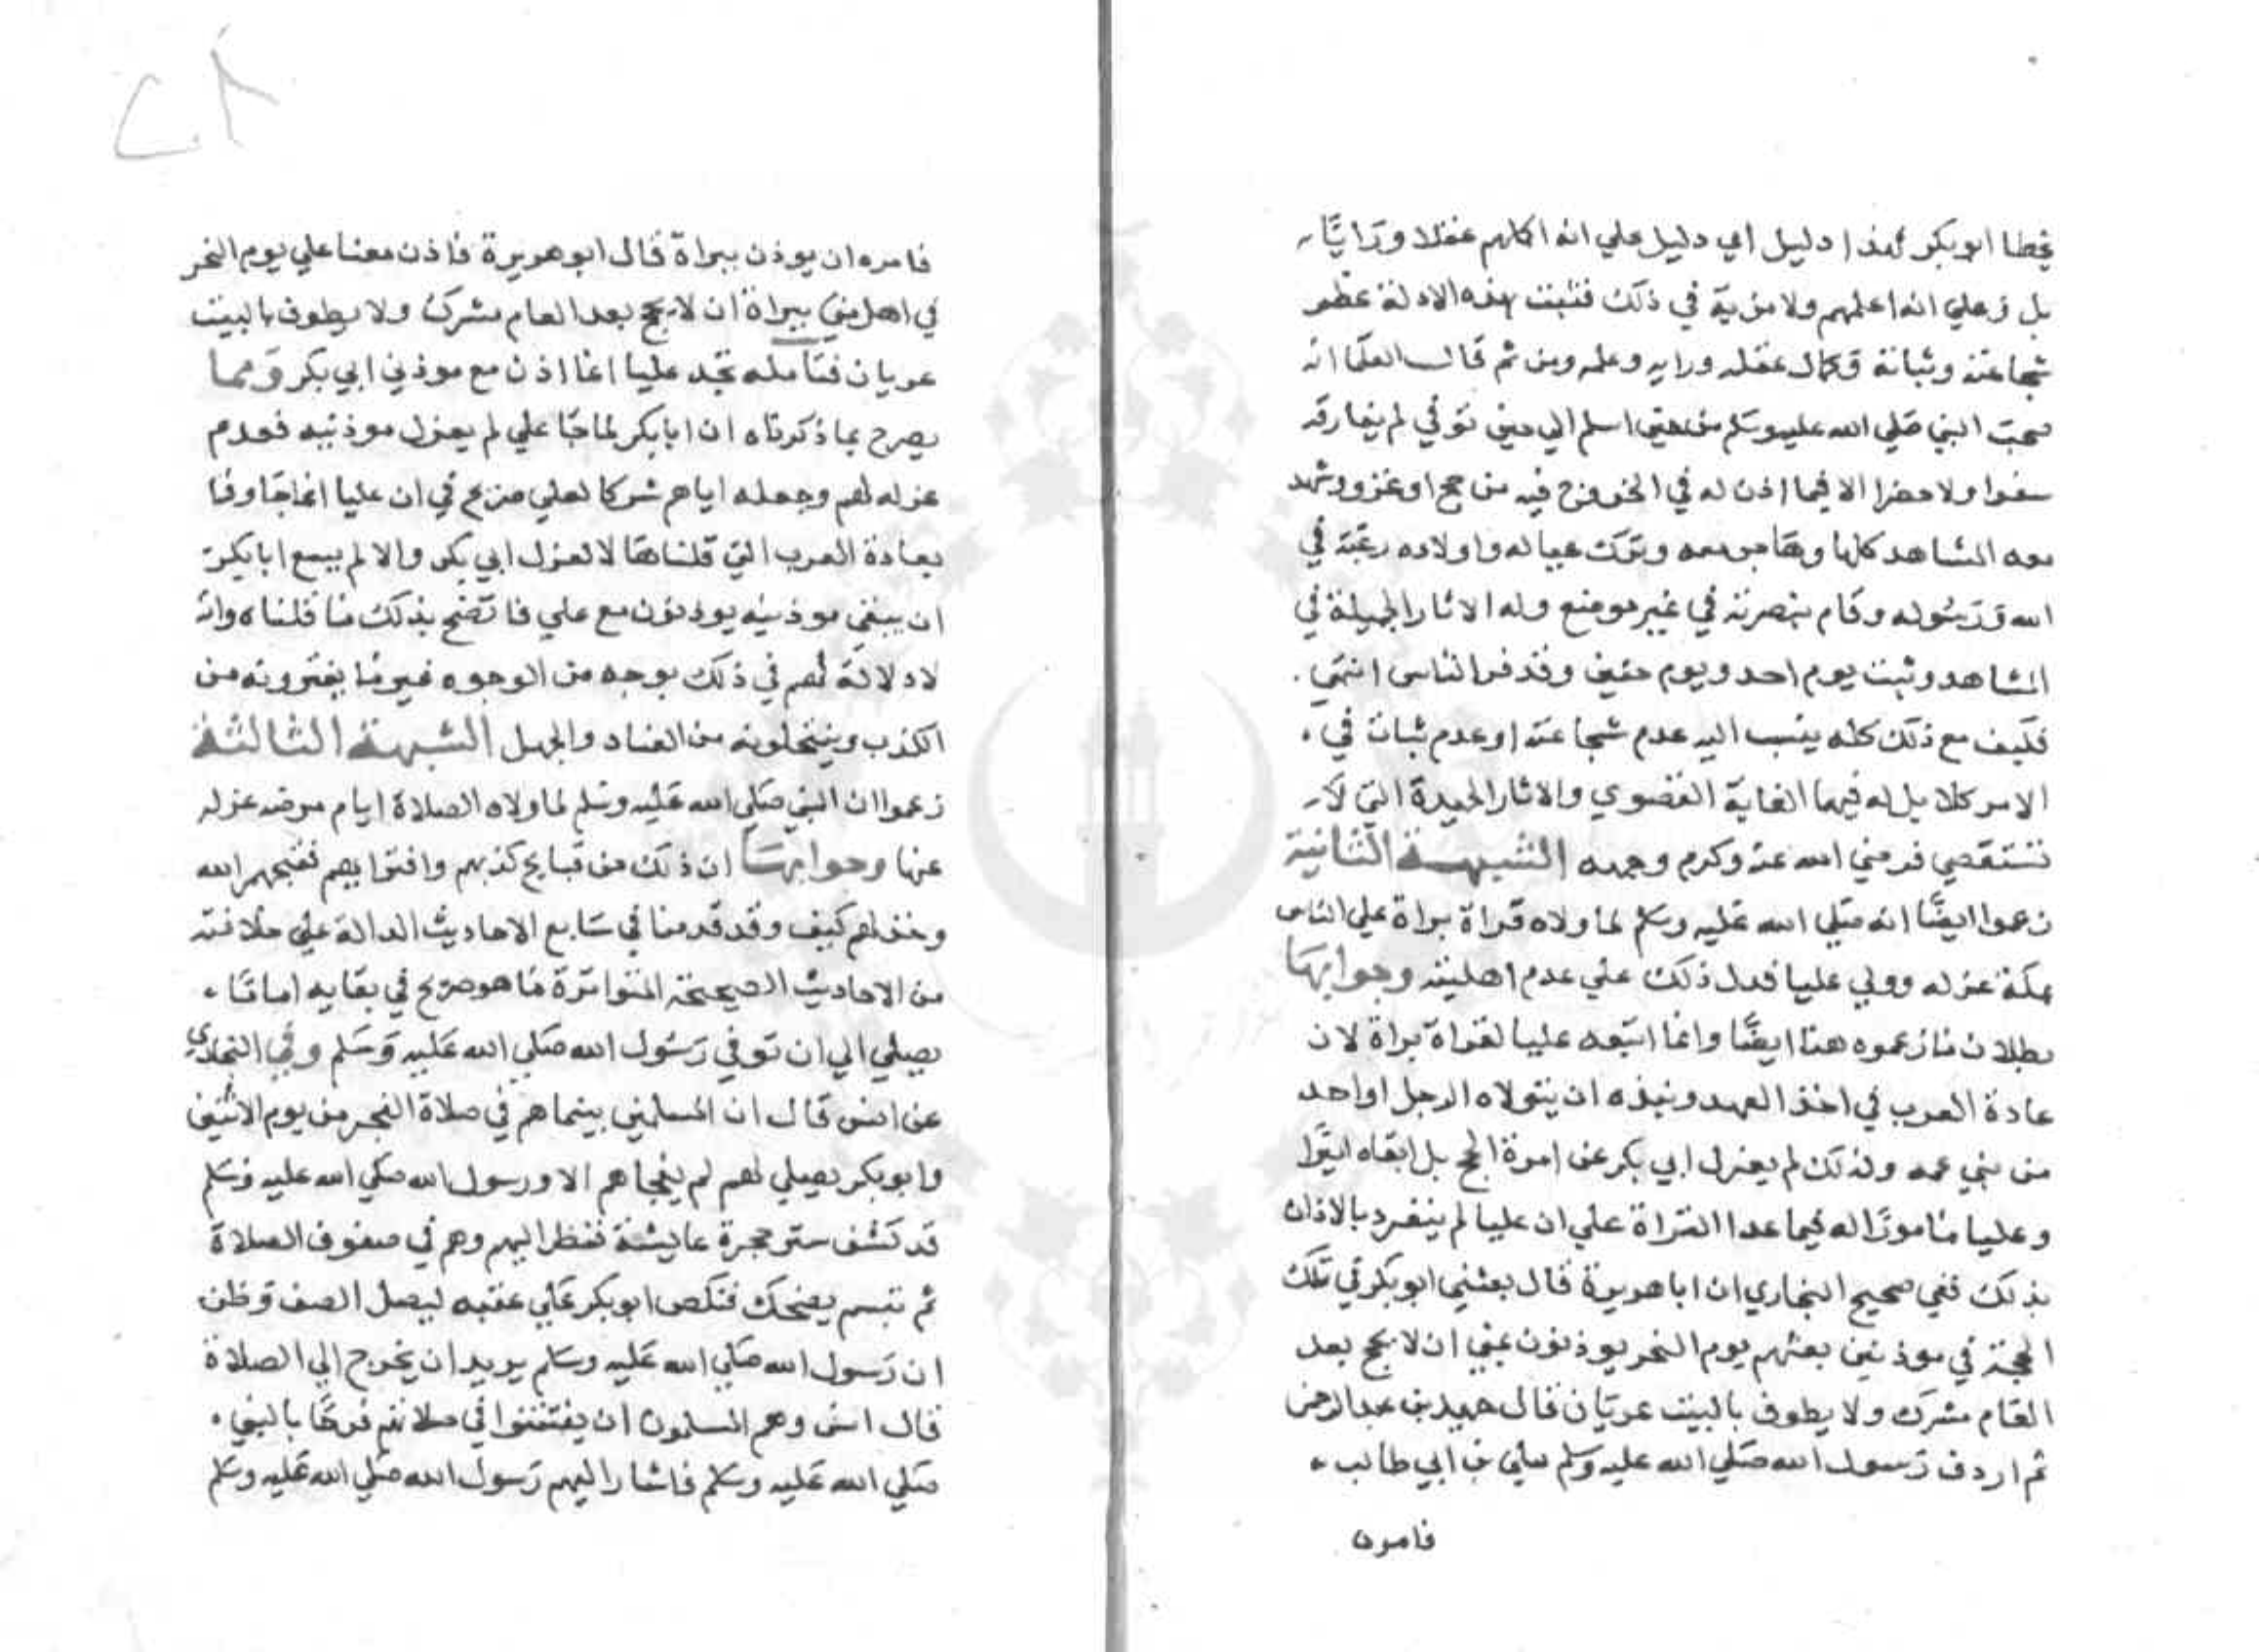 يخطا ابو بكر فهذا دليل اي دليل علي انه اكملهم عقلا ورَايًا
بل وعلي انه اعلمهم ولا مزية في ذلك فثبت بهذه الادلة عظم
شجاعته وثباته وكمال عقله ورايه وعلمه ومن ثم قال العلما انه
صحب النبي صَلي الله عليه وسَلم من حين اسلم الي حين توفي لم يفارقه
سفرا ولا حضرا الا فيما اذن له في الخروج فيه من حج او غزو وشهد
معه المشاهد كلها وهاجر معه وترك عياله واولاده رغبَة في
الله وَرَسُوله وقام بنصرته في غير موضع وله الاثار الجميلة في
المشاهد وثبت يوم احد ويوم حنين وقد فر الناس انتهي .
فكيف مع ذلك كله ينسب اليه عدم شجاعته او عدم ثبات في
الامر كلا بل له فيهما الغاية القصوي والاثار الحميدة التي لا
تستقصي فرضي الله عنه وكرم وجهه الشبهة الثانية
زعموا ايضًا انه صَلي الله عَليه وسلم لما ولاه قراة براة علي الناس
بمكة عزله وولي عليا فدل ذلك علي عدم اهليته وجوابهَا
بطلان ما زعموه هنا ايضًا وانما اتبعه عليا لقراة براة لان
عادة العرب في اخذ العهد ونبذه ان يتولاه الرجل او احد
من بني عمه ولذلك لم يعزل ابي بكر عن امرة الحج بل ابقاه اميرا
وعليا مَامورًا له فيما عدا القراة علي ان عليا لم ينفرد بالاذان
بذلك ففي صحيح البخاري ان ابا هريرة قال بعثني ابو بكر في تلك
الحجة في موذنين بعثهم يوم النحر يوذنون بمني ان لا يحج بعد
العَام مشرك ولا يطوف بالبيت عريَان قال حميد بن عبد الرحمن
ثم اردف رَسول الله صَلي الله عليه وسَلم بعلي بن ابي طالب
فامره
٢٨
فامره ان يوذن ببراة قال ابو هريرة فاذن معنا علي يوم النحر
في اهل مني ببراة ان لا يحج بعد العام مشرك ولا يطوف بالبيت
عريان فتامله تجد عليا انما اذن مع موذني ابي بكر وَمما
يصرح بما ذكرناه ان ابا بكر لما جَا علي لم يعزل موذنيه فعدم
عزله لهم وجعله اياهم شركا لعلي صريح في ان عليا انما جَا وفا
بعادة العرب التي قلناهَا لا لعزل ابي بكر والا لم يسع ابا بكر
ان يبقي موذنيه يوذنون مع علي فاتضح بذلك مَا قلناه وانه
لا دلالة لهم في ذلك بوجه من الوجوه غير مَا يفترونه من
الكذب وينتحلونه من العناد والجهل الشبهة الثالثة
زعموا ان النبي صَلي الله عَليه وسلم لما ولاه الصلاة ايام مرضه عزله
عنها وجوابهَا ان ذلك من قبايح كذبهم وافترايهم فقبحهم الله
وخذلهم كيف وقد قدمنا في سَابع الاحاديث الدالة علي خلافته
من الاحاديث الصحيحة المتواترة مَا هو صريح في بقايه امامًا
يصلي الي ان توفي رَسُول الله صَلي الله عَليه وَسَلم وفي البخاري
عن انس قال ان المسلمين بينما هم في صلاة الفجر من يوم الاثنين
وابو بكر يصلي لهم لم يفجاهم الا ورسول الله صَلي الله عليه وسَلم
قد كَشف ستر حجرة عايشة فنظر اليهم وهم في صفوف الصلاة
ثم تبسم يضحك فنكص ابو بكر عَلي عقبه ليصل الصف وَظن
ان رَسول الله صَلي الله عَليه وسلم يريد ان يخرج الي الصلاة
قال انس وهم المسلمون ان يفتتنوا في صلاتهم فرحًا بالنبي
صَلي الله عَليه وسلم فاشار اليهم رَسول الله صَلي الله عَليه وسلم